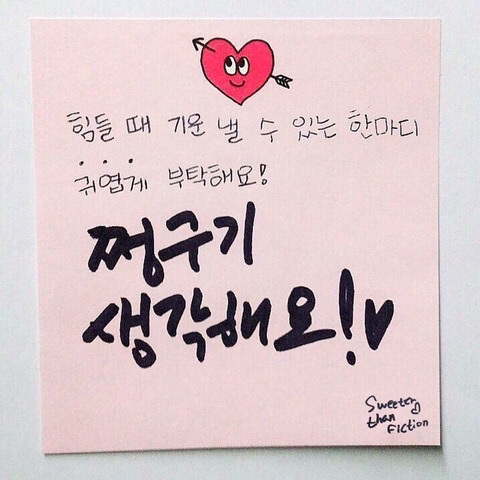 힘들 때 기운 낼 수 있는 한마디
귀엽게 부탁해요!
쩡구기
생각해요!♥
Sweeter
than
Fiction